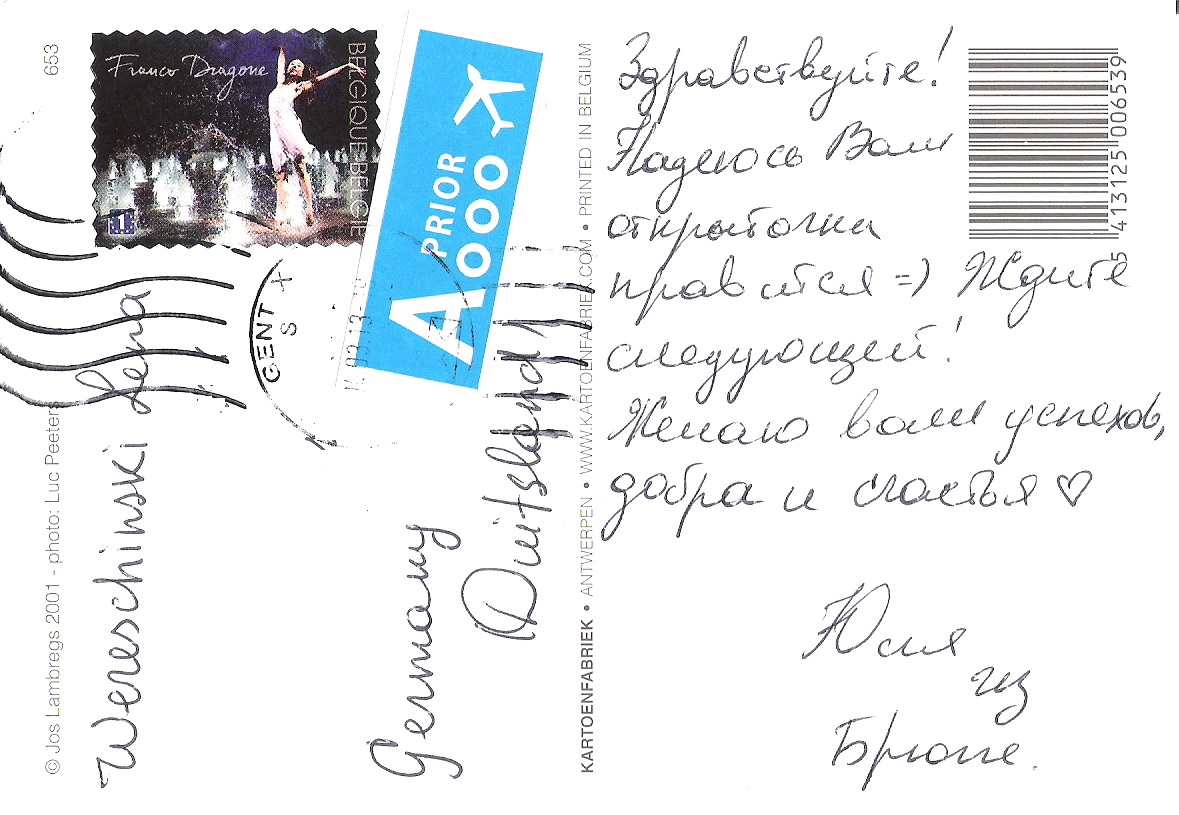 653
Franco Dragone
BELGIQUE-BELGIË
1
A PRIOR
GENT X
S
Wereschinski Lena
Germany
Duitsland
© Jos Lambregs 2001 - photo: Luc Peeters
KARTOENFABRIEK • ANTWERPEN • WWW.KARTOENFABRIEK.COM • PRINTED IN BELGIUM
Здравствуйте!
Надеюсь Вам
открыточка
нравится =) Ждите
следующей!
Желаю вам успехов,
добра и счастья ♡
Юля
из
Брюгге.
5 413125 006539